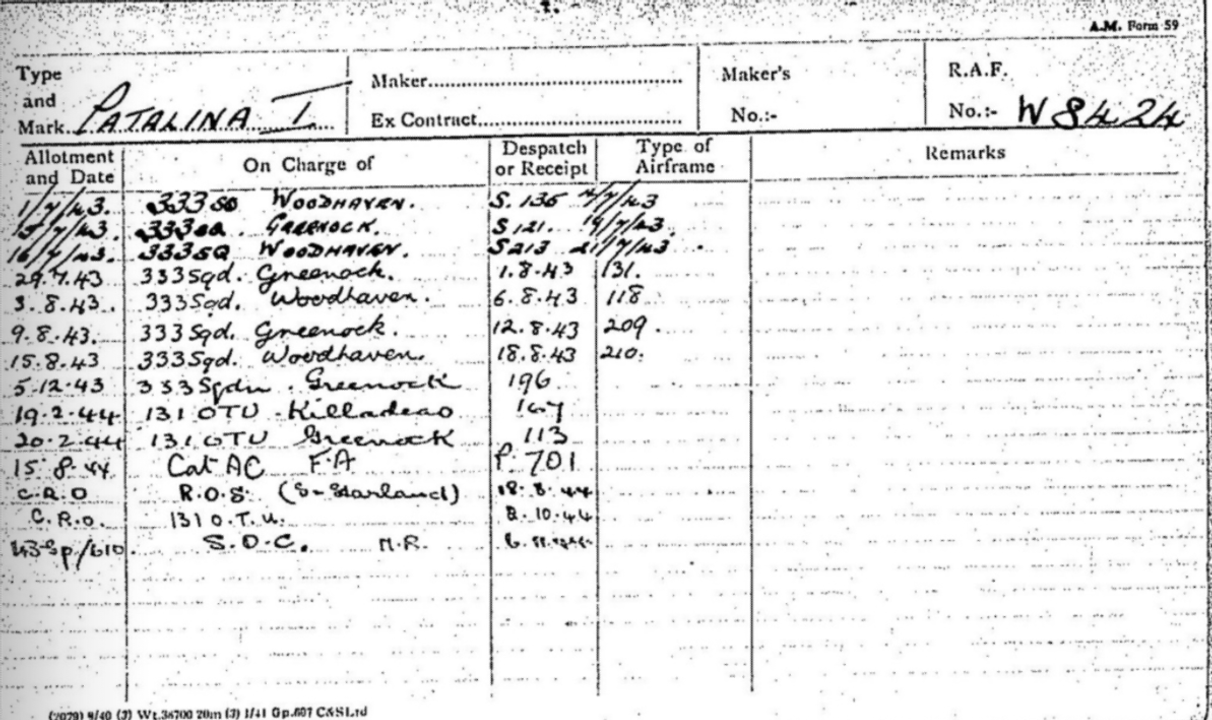 A.M. Form 59
Type and Mark PATALINA I. Maker Ex Contract Maker's No.:- R.A.F. No.:- W8424
Allotment and Date On Charge of Despatch or Receipt Type of Airframe Remarks
1/7/43. 333 SQ WOODHAVEN. S. 135 7/7/43
333 SQ. GREENOCK. S 121. 19/7/43.
16/7/43. 333 SQ WOODHAVEN. S213 21/7/43.
29.7.43 333 Sqd. Greenock. 1.8.43 131.
3.8.43. 333 Sqd. Woodhaven. 6.8.43 118
9.8.43. 333 Sqd. Greenock. 12.8.43 209.
15.8.43 333 Sqd. Woodhaven. 18.8.43 210.
5.12.43 333 Sqdn. Greenock 196
19.2.44 131 OTU Killadeas
20.2.44 131 OTU Greenock 113
15.8.44 Cat AC F.A P. 701
C.R.O R.O.S. (S-Harland) 18.8.44
C.R.O. 131 O.T.U. 8.10.44
43 Gp/610. S.O.C. M.R.
(2079) 9/40 (3) Wt.36700 20m (3) 1/41 Gp.607 C&SLtd